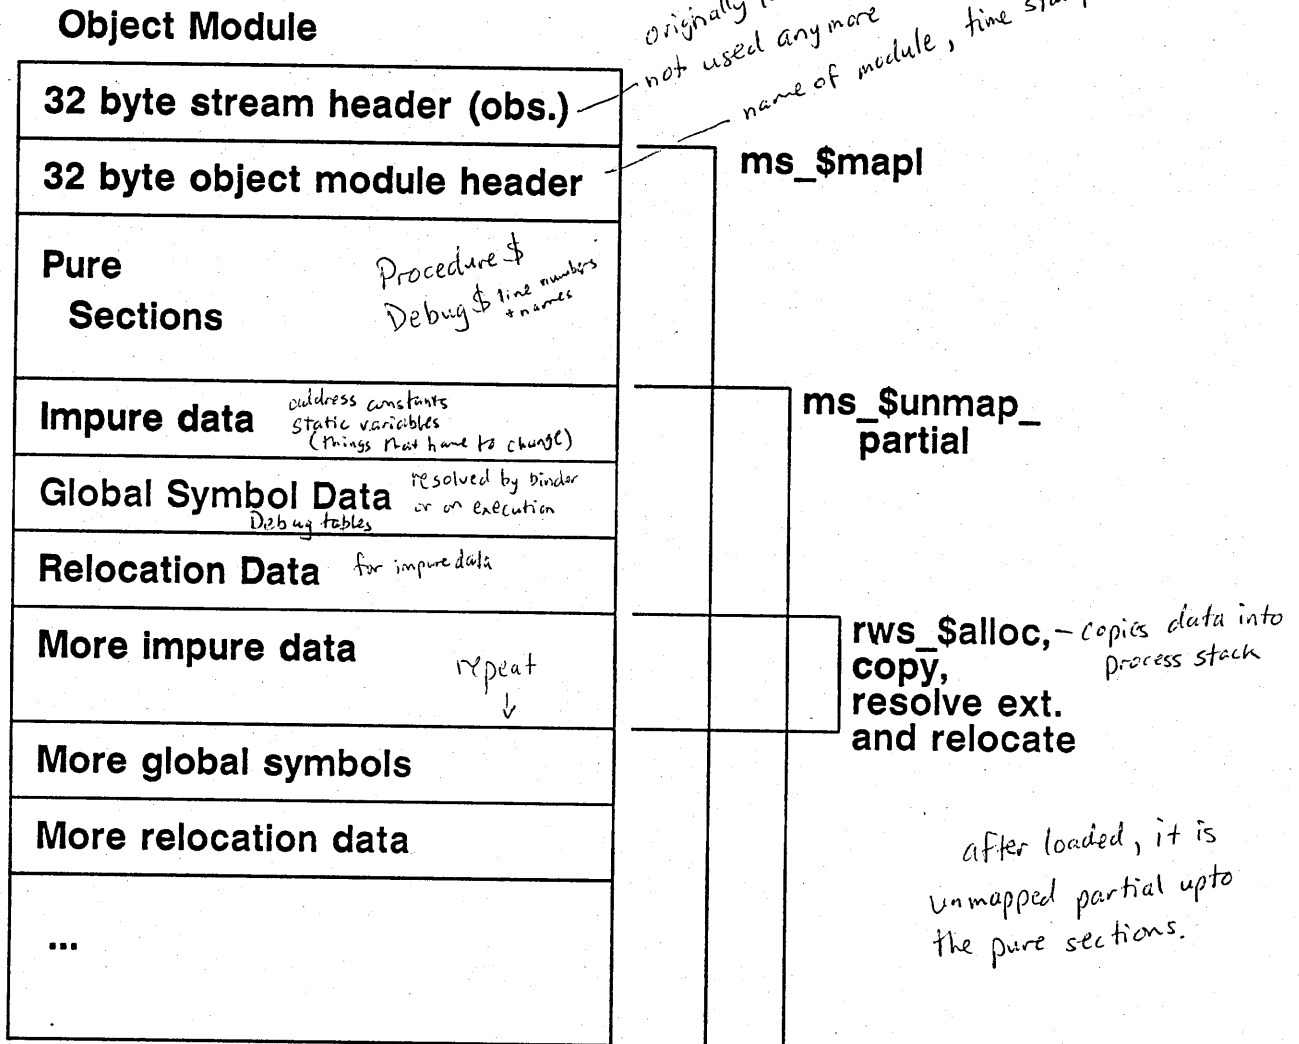 Object Module
originally
not used anymore
name of module, time
32 byte stream header (obs.)
32 byte object module header
ms_$mapl
Pure
Sections
Procedure $
Debug $ line numbers
+ names
Impure data
address constants
static variables
(things that have to change)
ms_$unmap_
partial
Global Symbol Data
resolved by binder
or on execution
Debug tables
Relocation Data
for impure data
More impure data
repeat
rws_$alloc,
- copies data into
process stack
copy,
resolve ext.
and relocate
More global symbols
More relocation data
after loaded, it is
unmapped partial upto
the pure sections.
...